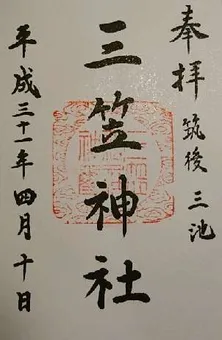 奉拝 筑後 三池
三笠神社
平成三十一年四月十日